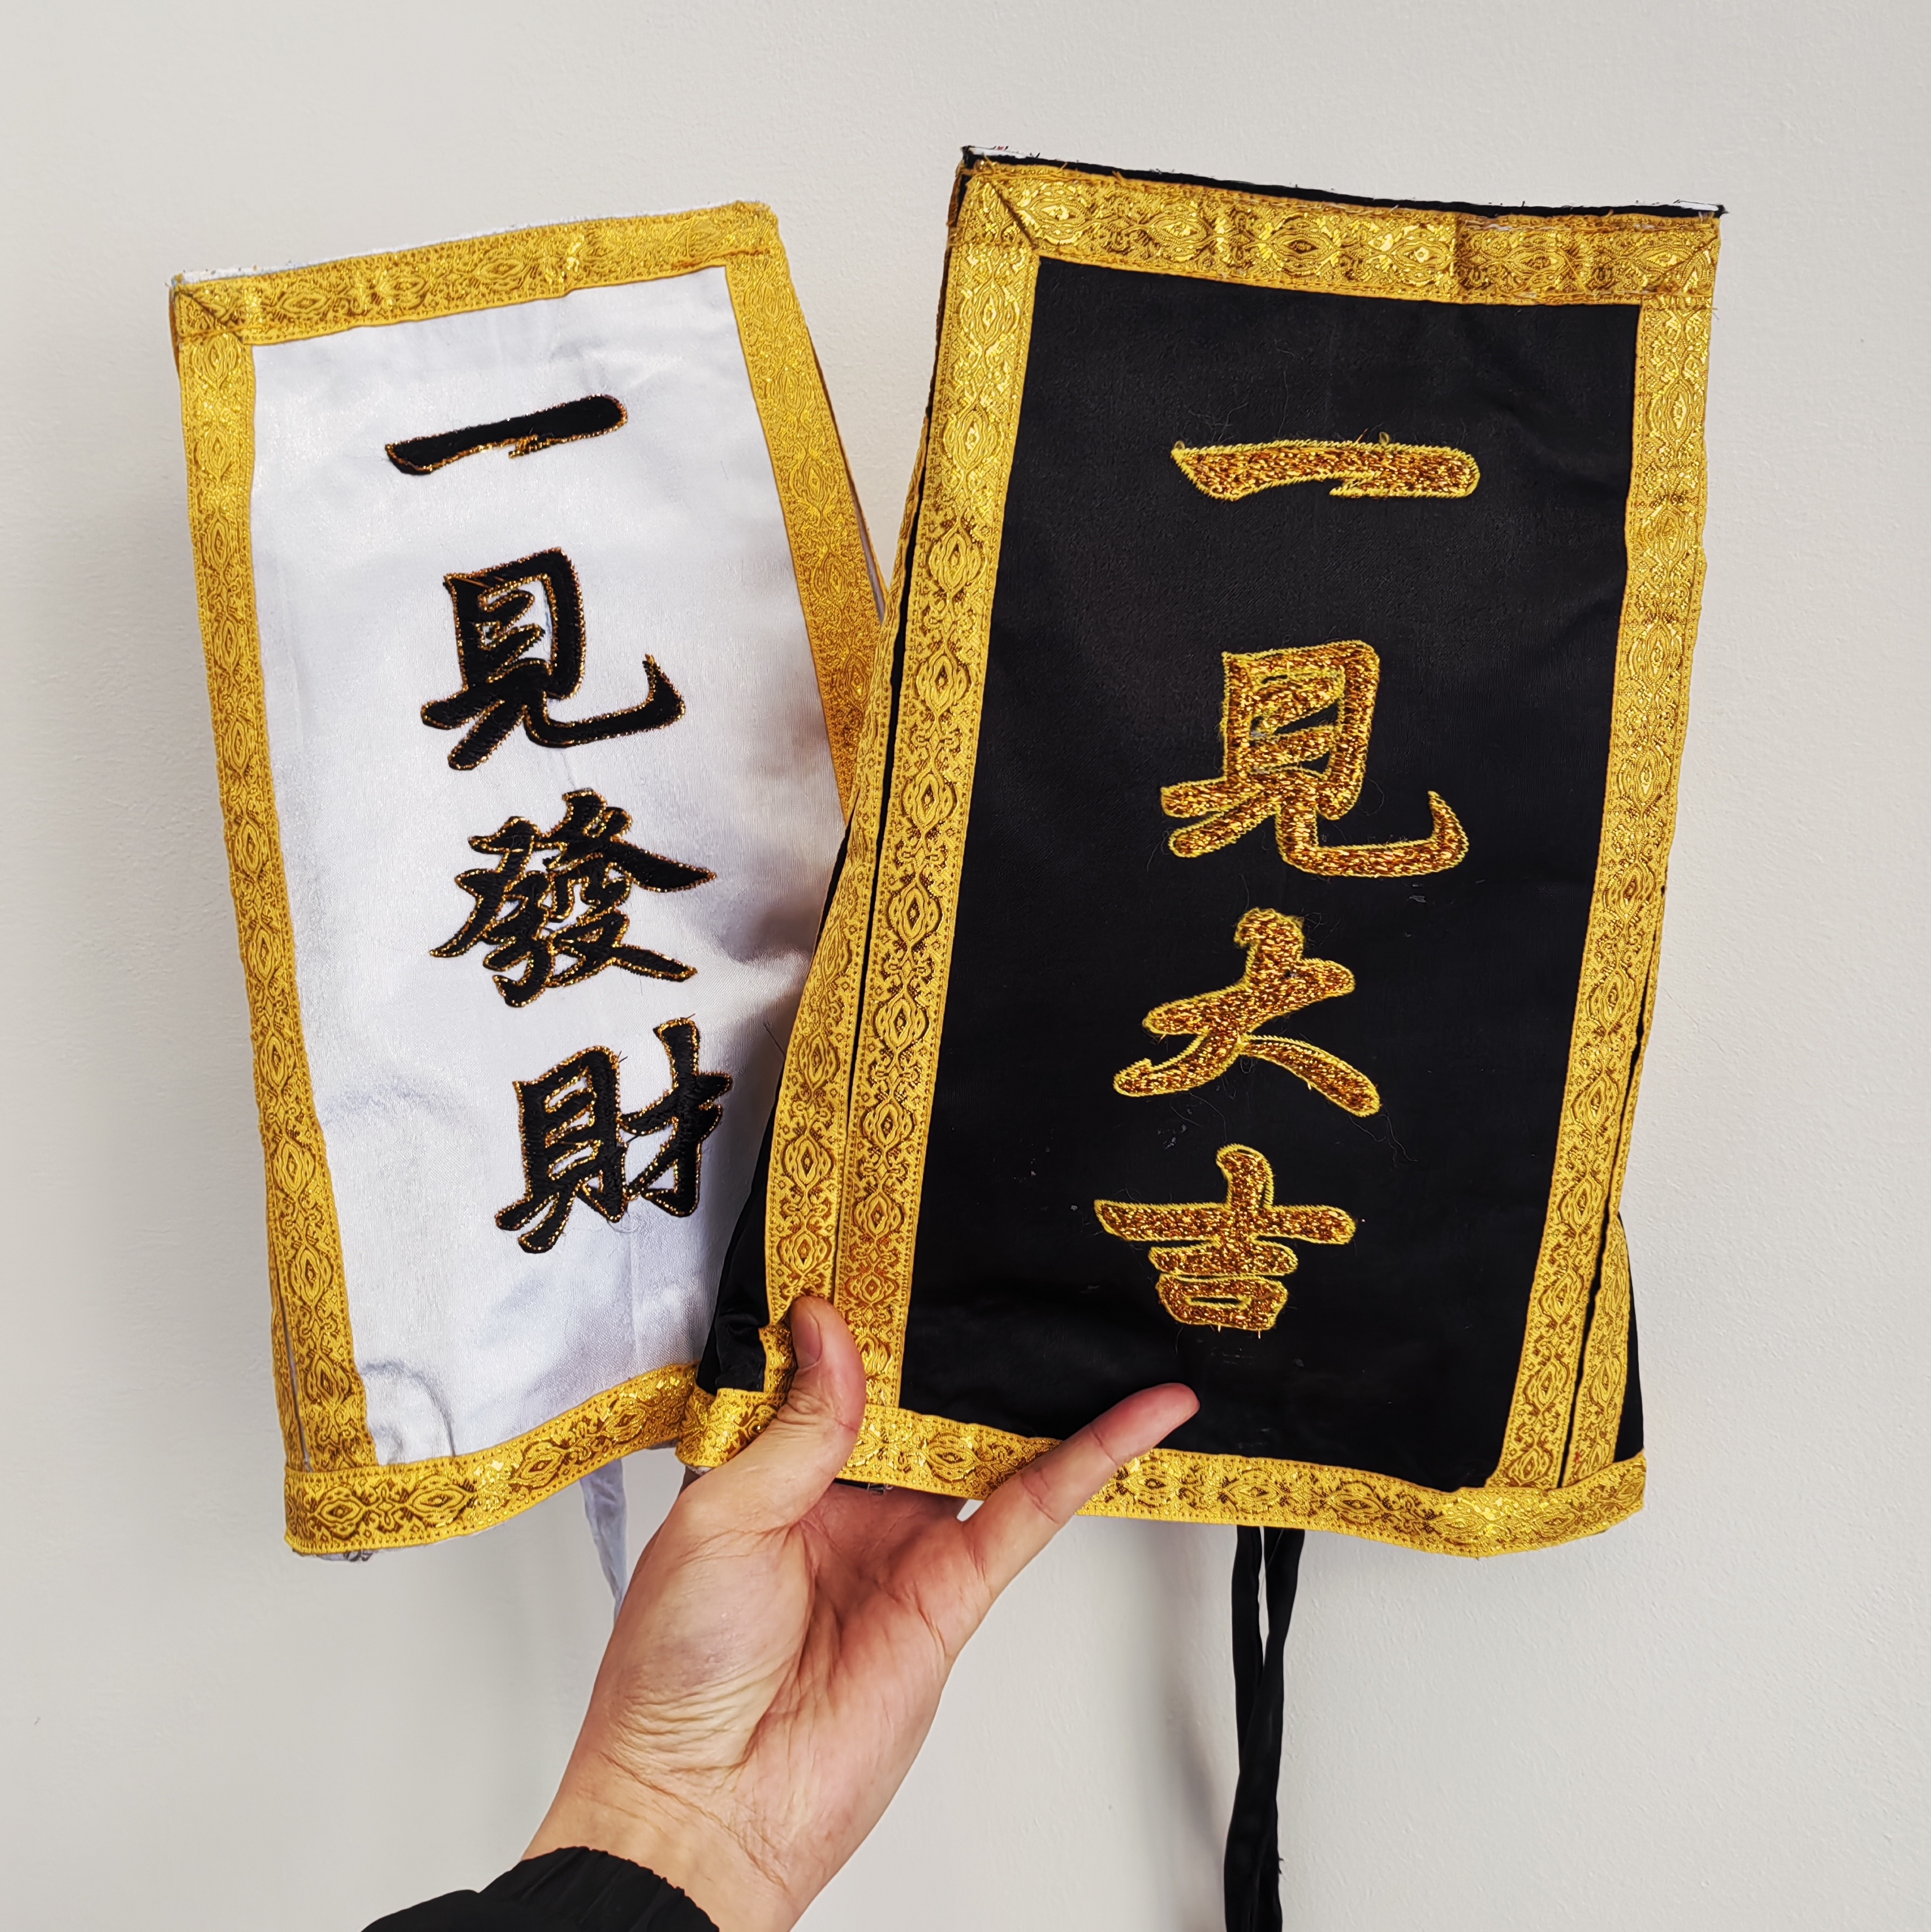 一見發財
一見大吉